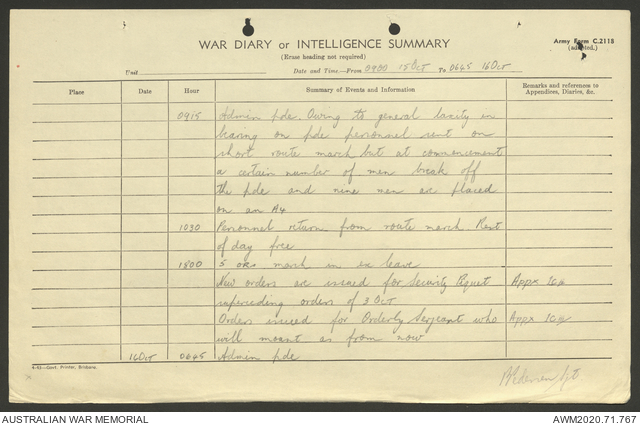 Army Form C.2118
(adapted.)
WAR DIARY or INTELLIGENCE SUMMARY
(Erase heading not required)
Unit
Date and Time.—From 0900 15 Oct To 0645 16 Oct
Place Date Hour Summary of Events and Information Remarks and references to Appendices, Diaries, &c.
0915 Admin pde. Owing to general laxity in
bearing on pde personnel sent on
short route march but at commencement
a certain number of men break off
the pde and nine men are placed
on an A4
1030 Personnel return from route march. Rest
of day free
1800 5 ors march in ex leave
New orders are issued for Security Piquet Appx
superceding orders of 3 Oct
Orders issued for Orderly Sergeant who Appx
will mount as from now
16 Oct 0645 Admin pde
4-43—Govt. Printer, Brisbane.
AUSTRALIAN WAR MEMORIAL
AWM2020.71.767